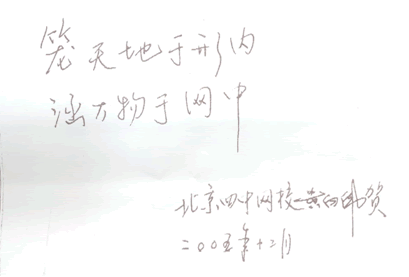 笼天地于形内
涵万物于网中
北京四中网校黄向伟贺
二00五年十二月